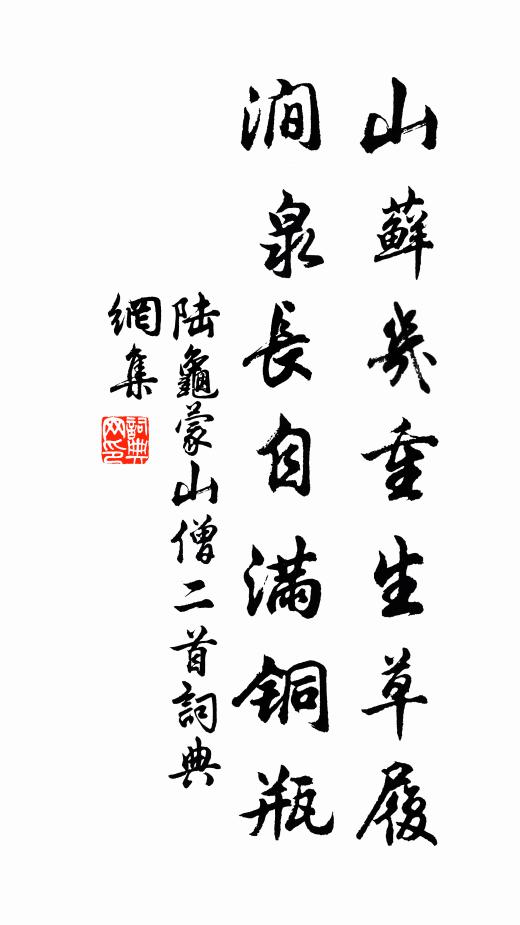 山蘚幾重生草履
澗泉長自滿銅瓶
陆龜蒙山僧二首詞典
網集
詞典
网印